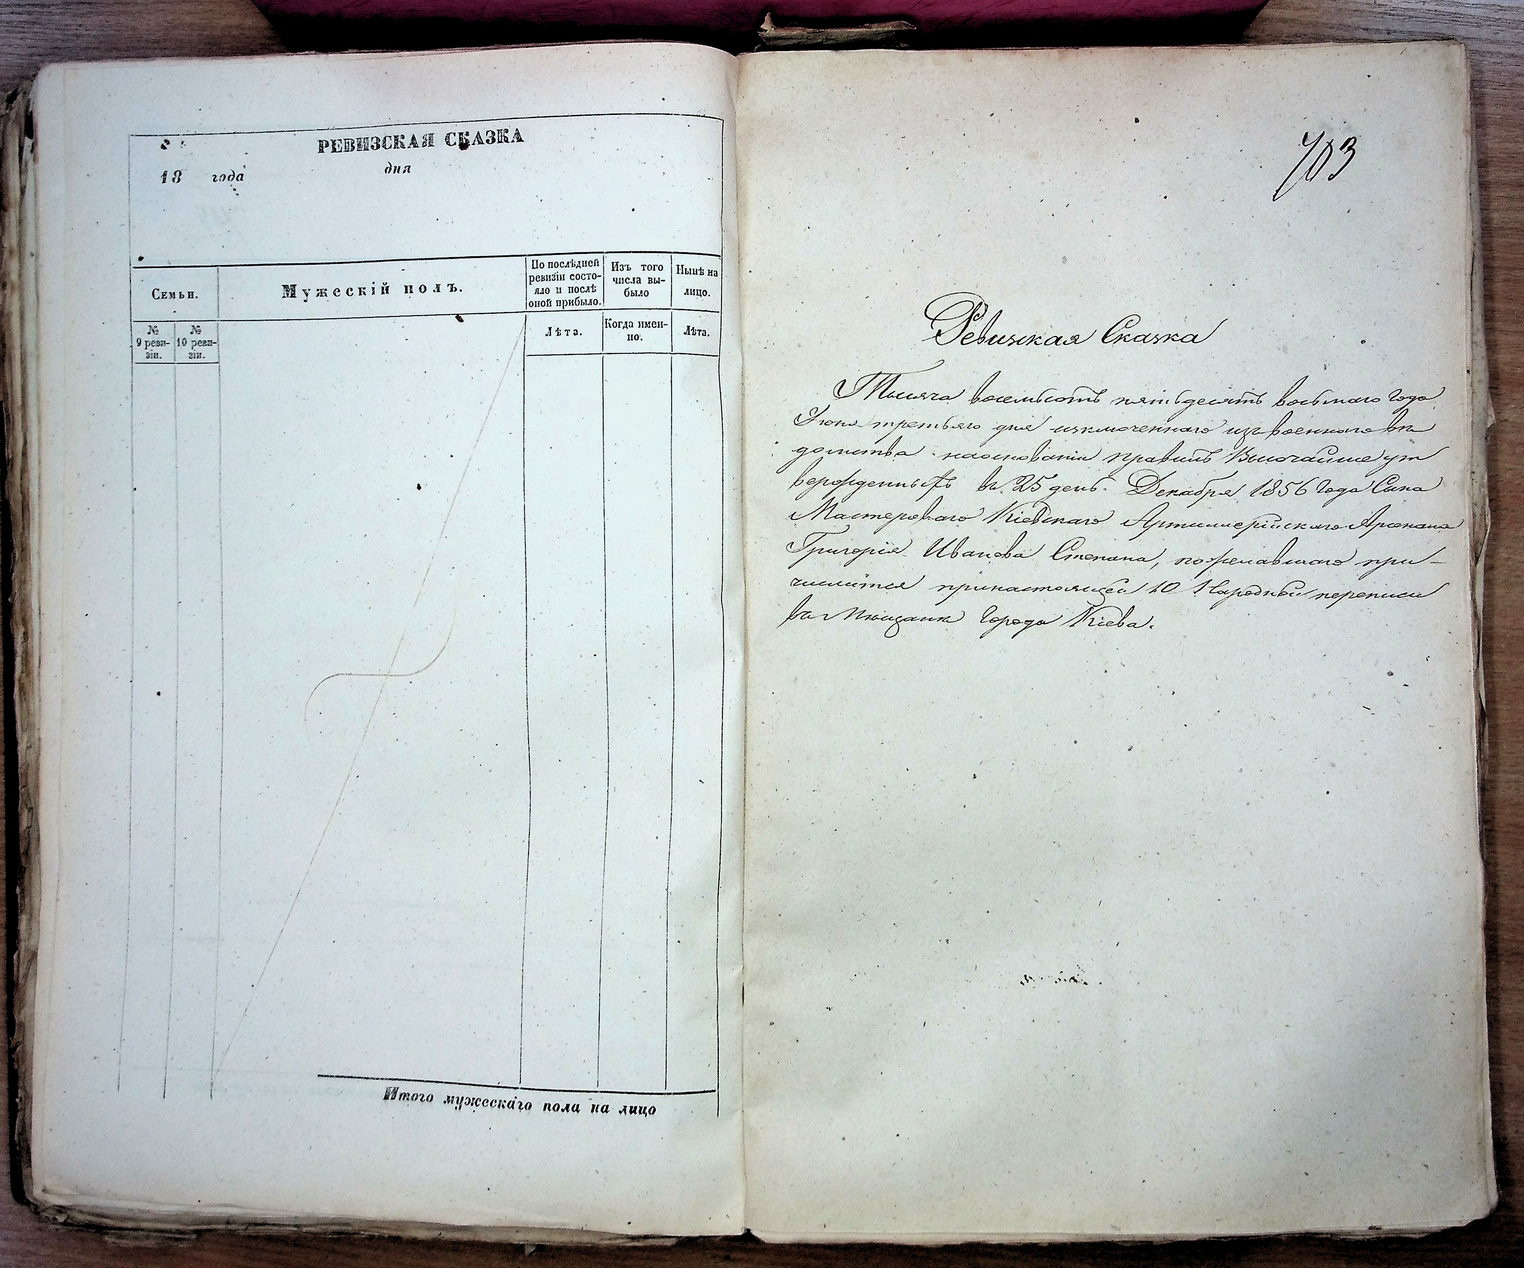 РЕВИЗСКАЯ СКАЗКА
18 года дня
Семьи.
Мужескій полъ.
По послѣдней
ревизіи состо-
яло и послѣ
оной прибыло.
Изъ того
числа вы-
было
Нынѣ на
лицо.
№
9 реви-
зіи.
№
10 реви-
зіи.
Лѣта.
Когда имен-
но.
Лѣта.
Итого мужескаго пола на лицо
703
Ревизская Сказка
Тысяча восемьсотъ пятьдесятъ восьмаго года
Іюня третьяго дня изключеннаго изъ военного вѣ
домства наоснованіи правилъ Высочайше ут
вержденныхъ въ 25 день Декабря 1856 года Сына
Мастероваго Кіевскаго Артиллерійскаго Арсенала
Григорія Иванова Степана, пожелавшаго при-
числится принастоящей 10 Народной переписи
въ Мѣщане города Кіева.